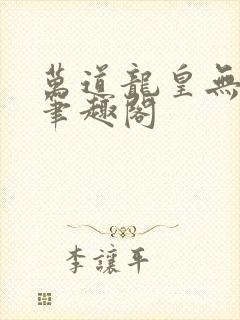 萬道龍皇無
筆趣閣
李讓平